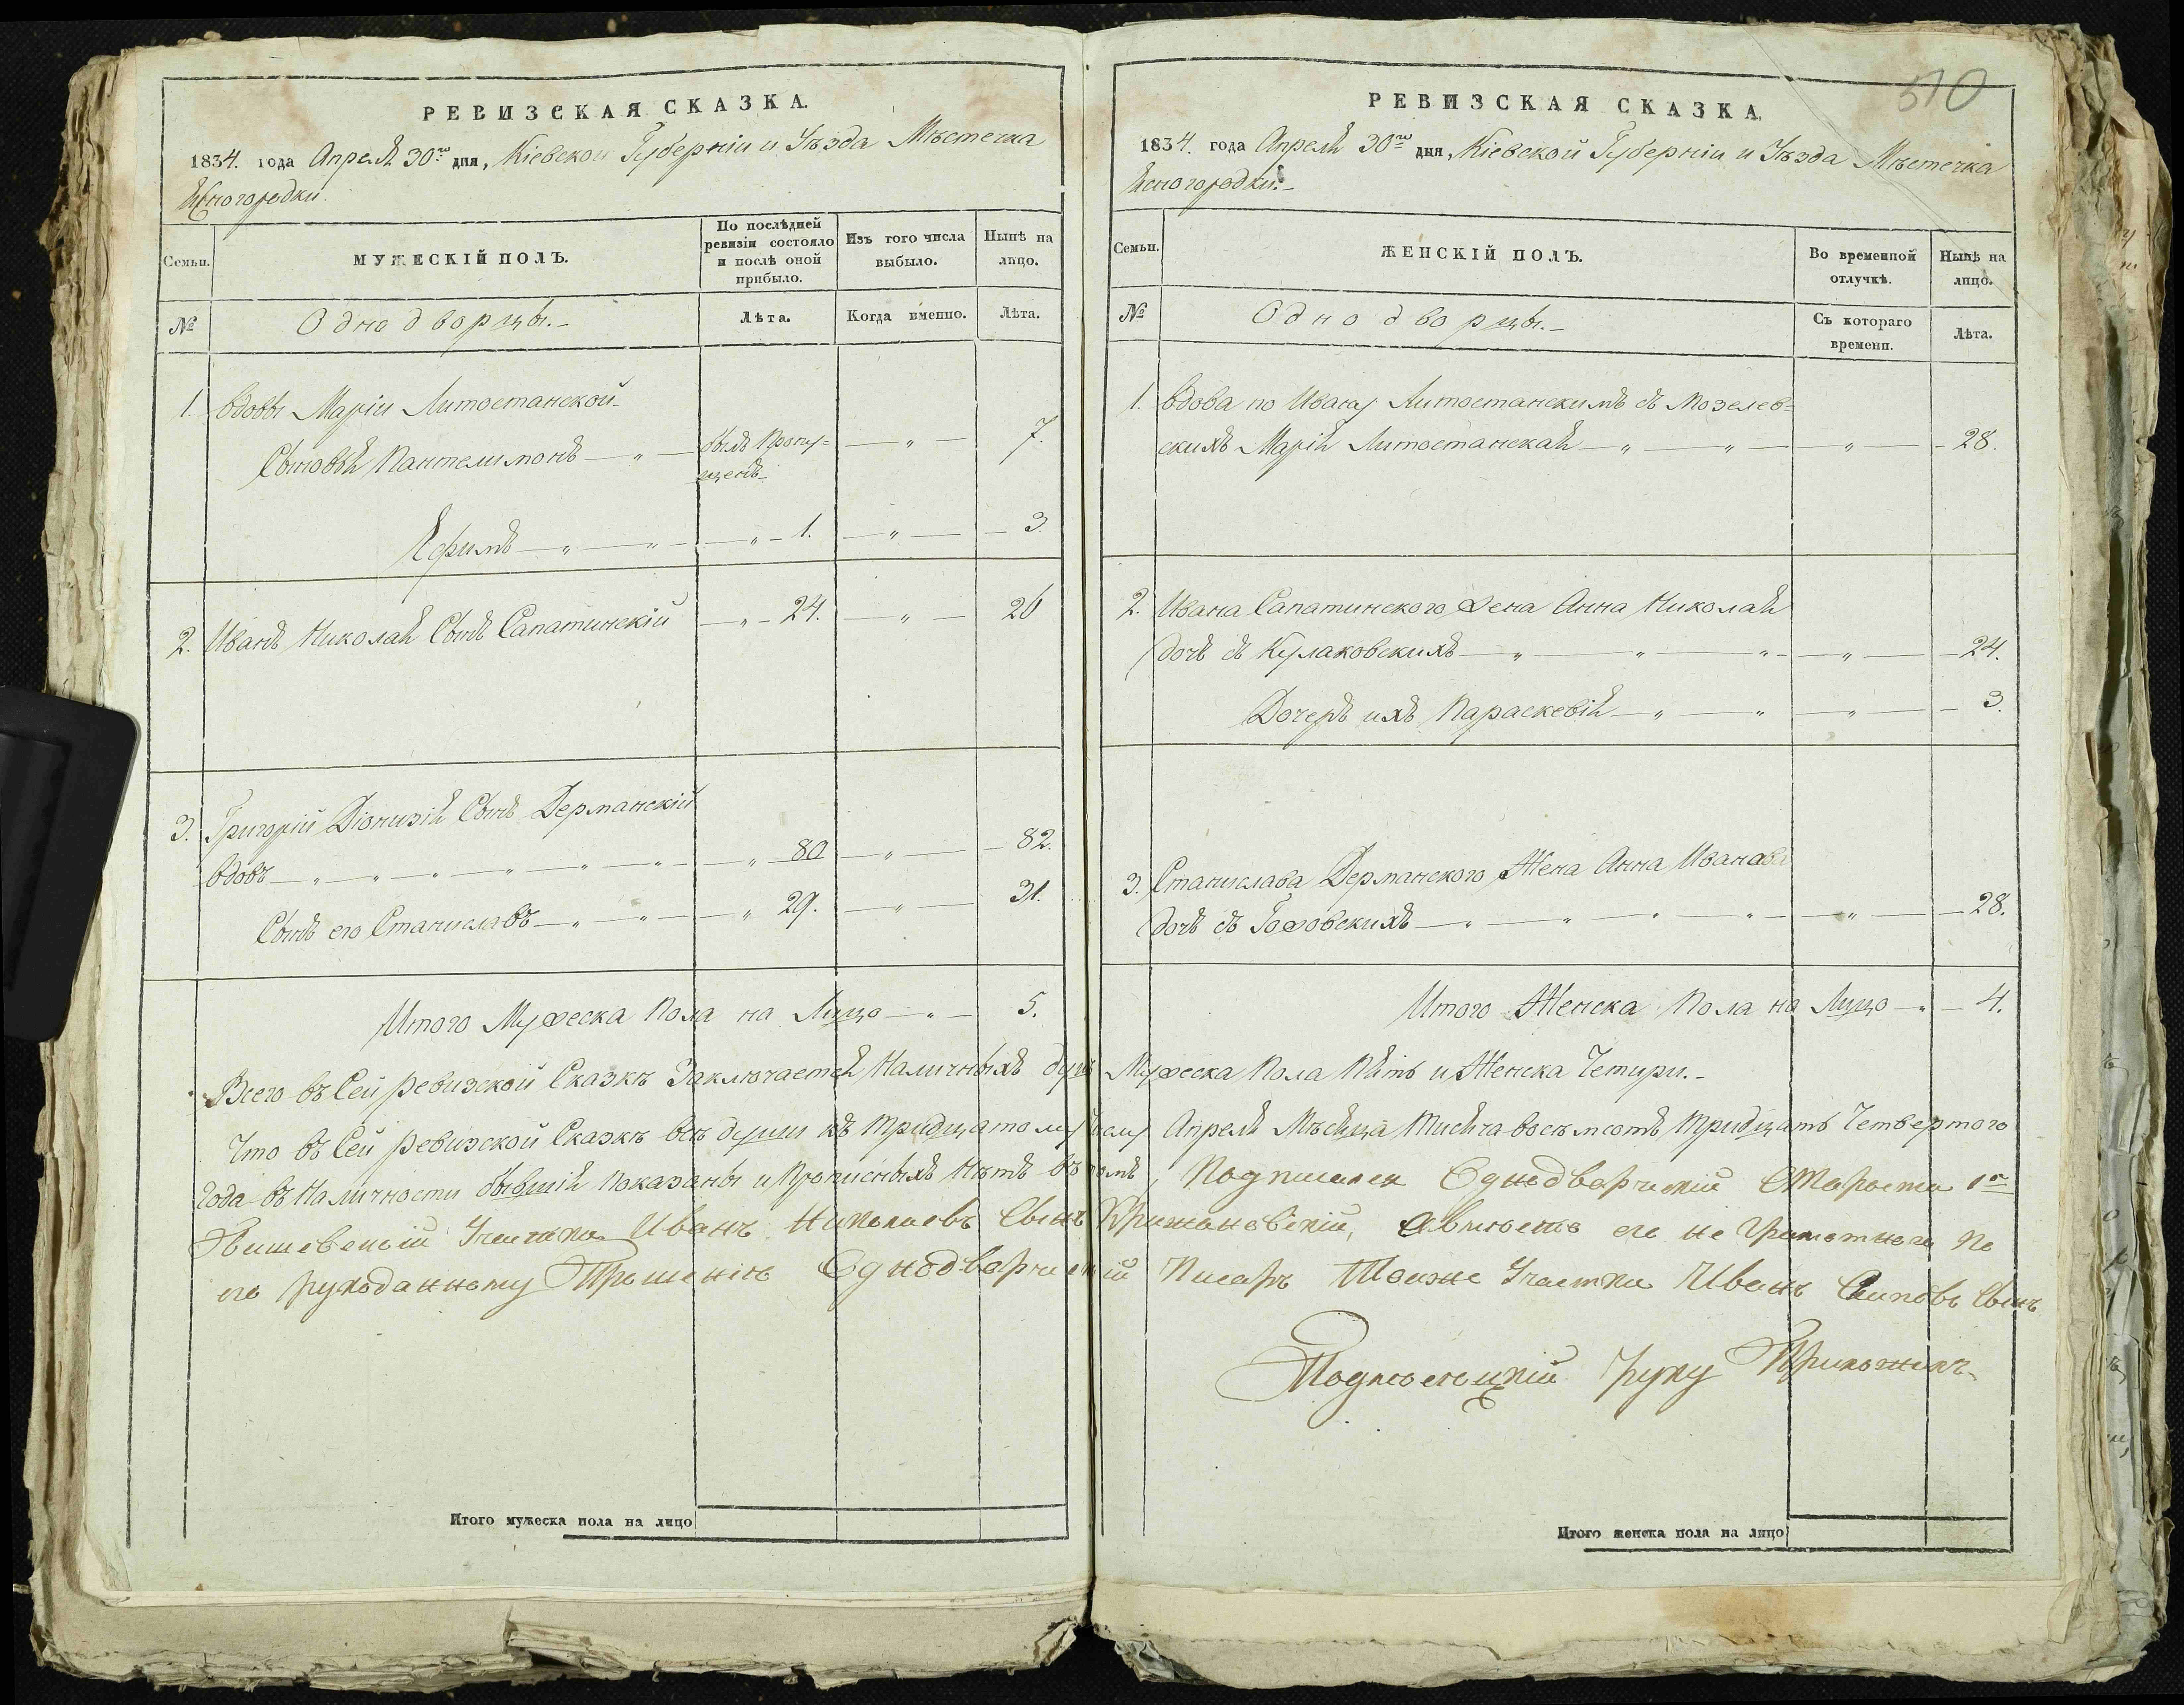 РЕВИЗСКАЯ СКАЗКА.
1834. года Апреля 30го дня, Кіевской Губерніи и Уѣзда Мѣстечка
Ясногородки.
Семьи.
МУЖЕСКІЙ ПОЛЪ.
По послѣдней ревизіи состояло и послѣ оной прибыло.
Изъ того числа выбыло.
Нынѣ на лицо.
№
Однодворцы.-
Лѣта.
Когда именно.
Лѣта.
1. Вдовы Маріи Литостанской-
Сыновья Пантелимонъ — „ — былъ пропу= — „ — 7.
щенъ-
Яфимъ — „ — „ — „ — 1. — „ — 3.
2. Иванъ Николая Сынъ Сапатинскій — „ — 24. — „ — 26
3. Григорій Діонизія Сынъ Дерманскій
вдовъ — „ — „ — „ — „ — „ — „ — „ — 80 — „ — 82.
Сынъ его Станиславъ — „ — „ — „ 29. — „ — 31.
Итого Мужеска Пола на Лицо — „ — 5.
РЕВИЗСКАЯ СКАЗКА.
510
1834. года Апреля 30го дня Кіевской Губерніи и Уѣзда Мѣстечка
Ясногородки.-
Семьи.
ЖЕНСКІЙ ПОЛЪ.
Во временной отлучкѣ.
Нынѣ на лицо.
№
Однодворцы.-
Съ котораго времени.
Лѣта.
1. Вдова по Ивану Литостанскимъ съ Мозелев=
скихъ Марія Литостанская — „ — „ — „ — 28.
2. Ивана Сапатинского жена Анна Николая
дочъ съ Кулаковскихъ — „ — „ — „ — „ — 24.
Дочеръ ихъ Параскевія — „ — „ — „ — 3.
3. Станислава Дерманского Жена Анна Иванова
дочъ съ Гожовскихъ — „ — „ — „ — „ — „ — 28.
Итого Женска Пола на Лицо — „ — 4.
Всего въ Сей ревизской Сказкѣ Заключается Наличныхъ душъ Мужеска Пола Пять и Женска Четыри.-
Что въ Сей ревизской Сказкѣ всѣ души къ тридцатому числу Апреля Мѣсяца Тисяча восѣмсотъ тридцать Четвертого
года въ Наличности бывшія показаны и прописныхъ нѣтъ въ томъ, Подписался Однодворческій Староста 1го
Участка Иванъ Николаевъ Сынъ Крижановскій, его не Грамотного По
его рукоданному Прошенію Однодворческій Писаръ Тоиже Участка Иванъ Сынъ
руку Приложилъ.
Итого мужеска пола на лицо
Итого женска пола на лицо